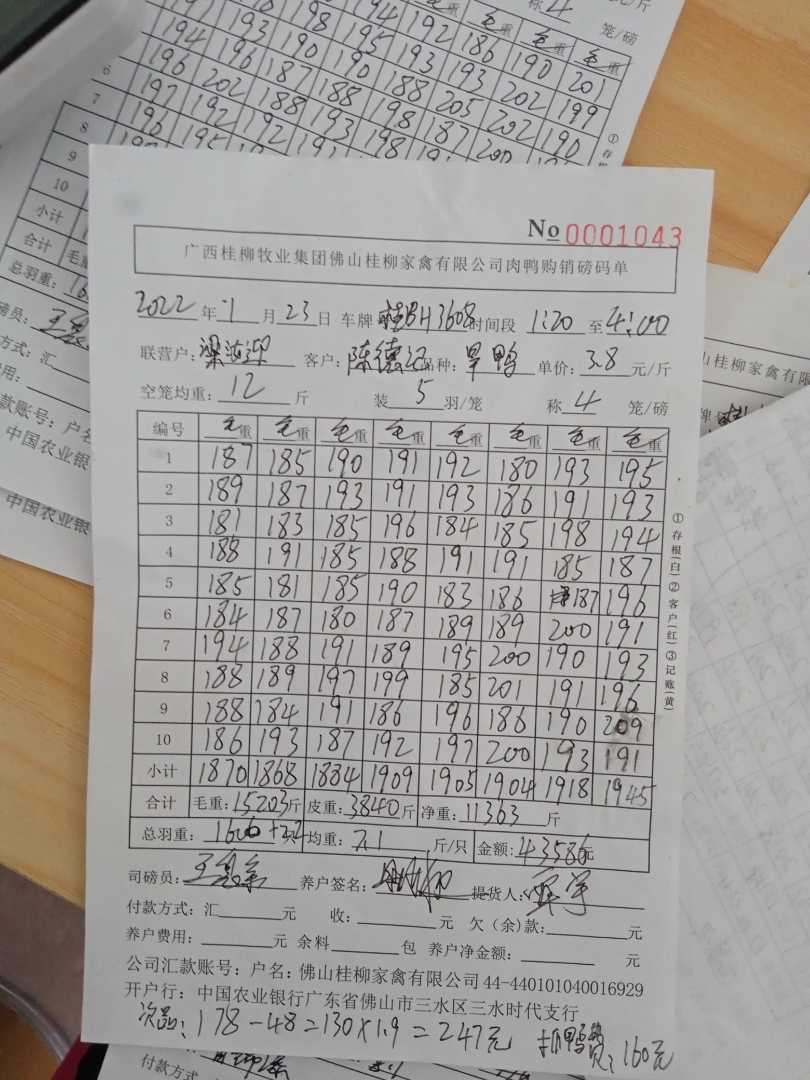 194 192 186 190 201
198 195 193 193 202 199
194 193 190 190 188 205 202 190
196 196 187 188 198 187 200
197 202 188 193 198
196 192 192
195
6
7
8
9
10
小计
合计
总羽重:
No 0001043
广西桂柳牧业集团佛山桂柳家禽有限公司肉鸭购销磅码单
2022 年 1 月 23 日 车牌 桂BH3608 时间段 1:20 至 4:00
联营户: 客户: 陈德记 品种: 旱鸭 单价: 3.8 元/斤
空笼均重: 12 斤 装 5 羽/笼 称 4 笼/磅
编号 毛重 毛重 毛重 毛重 毛重 毛重 毛重 毛重
1 187 185 190 191 192 180 193 195
2 189 187 193 191 193 186 191 193
3 181 183 185 196 184 185 198 194
4 188 191 185 188 191 191 185 187
5 185 181 185 190 183 186 187 196
6 184 187 180 187 189 189 200 191
7 194 188 191 189 195 200 190 193
8 188 189 197 199 185 201 191 196
9 188 184 191 186 196 186 190 209
10 186 193 187 192 197 200 193 191
小计 1870 1868 1884 1909 1905 1904 1918 1945
合计 毛重: 15203 斤 皮重: 3840 斤 净重: 11363 斤
总羽重: 1600+ 只 均重: 7.1 斤/只 金额: 43586 元
司磅员: 养户签名: 提货人:
付款方式: 汇 元 收: 元 欠(余)款: 元
养户费用: 元 余料 包 养户净金额: 元
公司汇款账号: 户名: 佛山桂柳家禽有限公司 44-440101040016929
开户行: 中国农业银行广东省佛山市三水区三水时代支行
次品: 178-48=130×1.9=247元 抓鸭费: 160元
①存根(白)②客户(红)③记账(黄)
中国农业银
中国农业银
付款方式: 汇